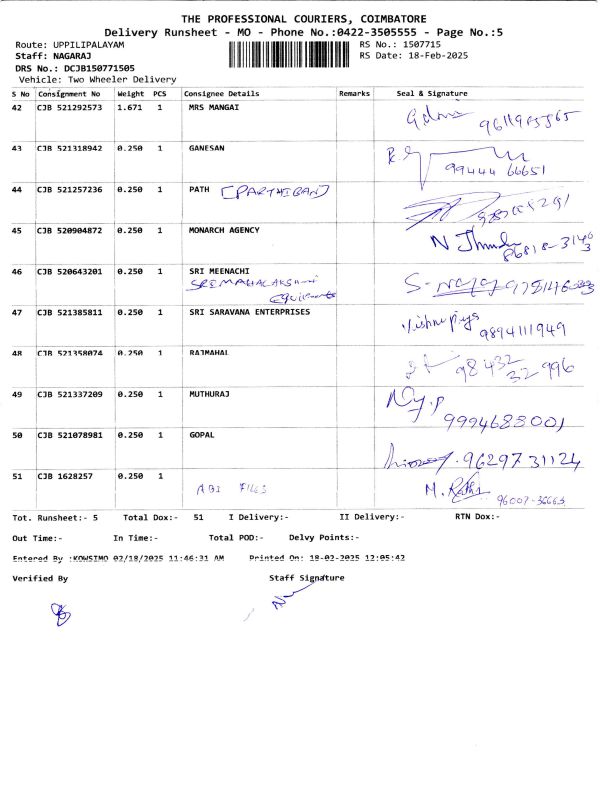 THE PROFESSIONAL COURIERS, COIMBATORE
Delivery Runsheet - MO - Phone No.:0422-3505555 - Page No.:5
Route: UPPILIPALAYAM RS No.: 1507715
Staff: NAGARAJ RS Date: 18-Feb-2025
DRS No.: DCJB150771505
Vehicle: Two Wheeler Delivery
S No Consignment No Weight PCS Consignee Details Remarks Seal & Signature
42 CJB 521292573 1.671 1 MRS MANGAI
43 CJB 521318942 0.250 1 GANESAN
99444 66651
44 CJB 521257236 0.250 1 PATH [PARTHIBAN]
45 CJB 520904872 0.250 1 MONARCH AGENCY
46 CJB 520643201 0.250 1 SRI MEENACHI
47 CJB 521385811 0.250 1 SRI SARAVANA ENTERPRISES
Vishnu priya 9894111949
48 CJB 521358074 0.250 1 RAJMAHAL
98432
32 996
49 CJB 521337209 0.250 1 MUTHURAJ
9994688001
50 CJB 521078981 0.250 1 GOPAL
96297 31124
51 CJB 1628257 0.250 1
ABI FILES M. 96007-36663
Tot. Runsheet:- 5 Total Dox:- 51 I Delivery:- II Delivery:- RTN Dox:-
Out Time:- In Time:- Total POD:- Delvy Points:-
Entered By :KOWSIMO 02/18/2025 11:46:31 AM Printed On: 18-02-2025 12:05:42
Verified By Staff Signature